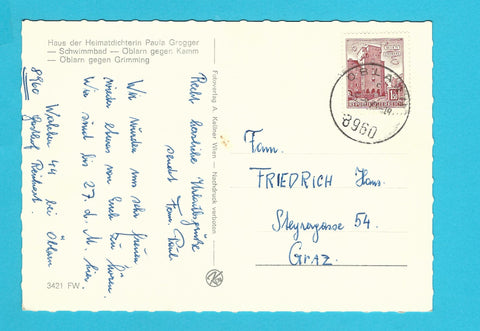 Haus der Heimatdichterin Paula Grogger
— Schwimmbad — Öblarn gegen Kamm
— Öblarn gegen Grimming
Recht herzliche Urlaubsgrüße
sendet Fam.
Wir würden uns sehr freuen
wieder etwas von Euch zu hören.
Wir sind bis 27. d. M. hier.
8960 Walchen 44 bei Öblarn
Gasthof
Fotoverlag A. Kellner Wien — Nachdruck verboten
3421 FW
REPUBLIK ÖSTERREICH
ÖBLARN
8960
Fam.
FRIEDRICH Hans
Steyrergasse 54.
GRAZ.